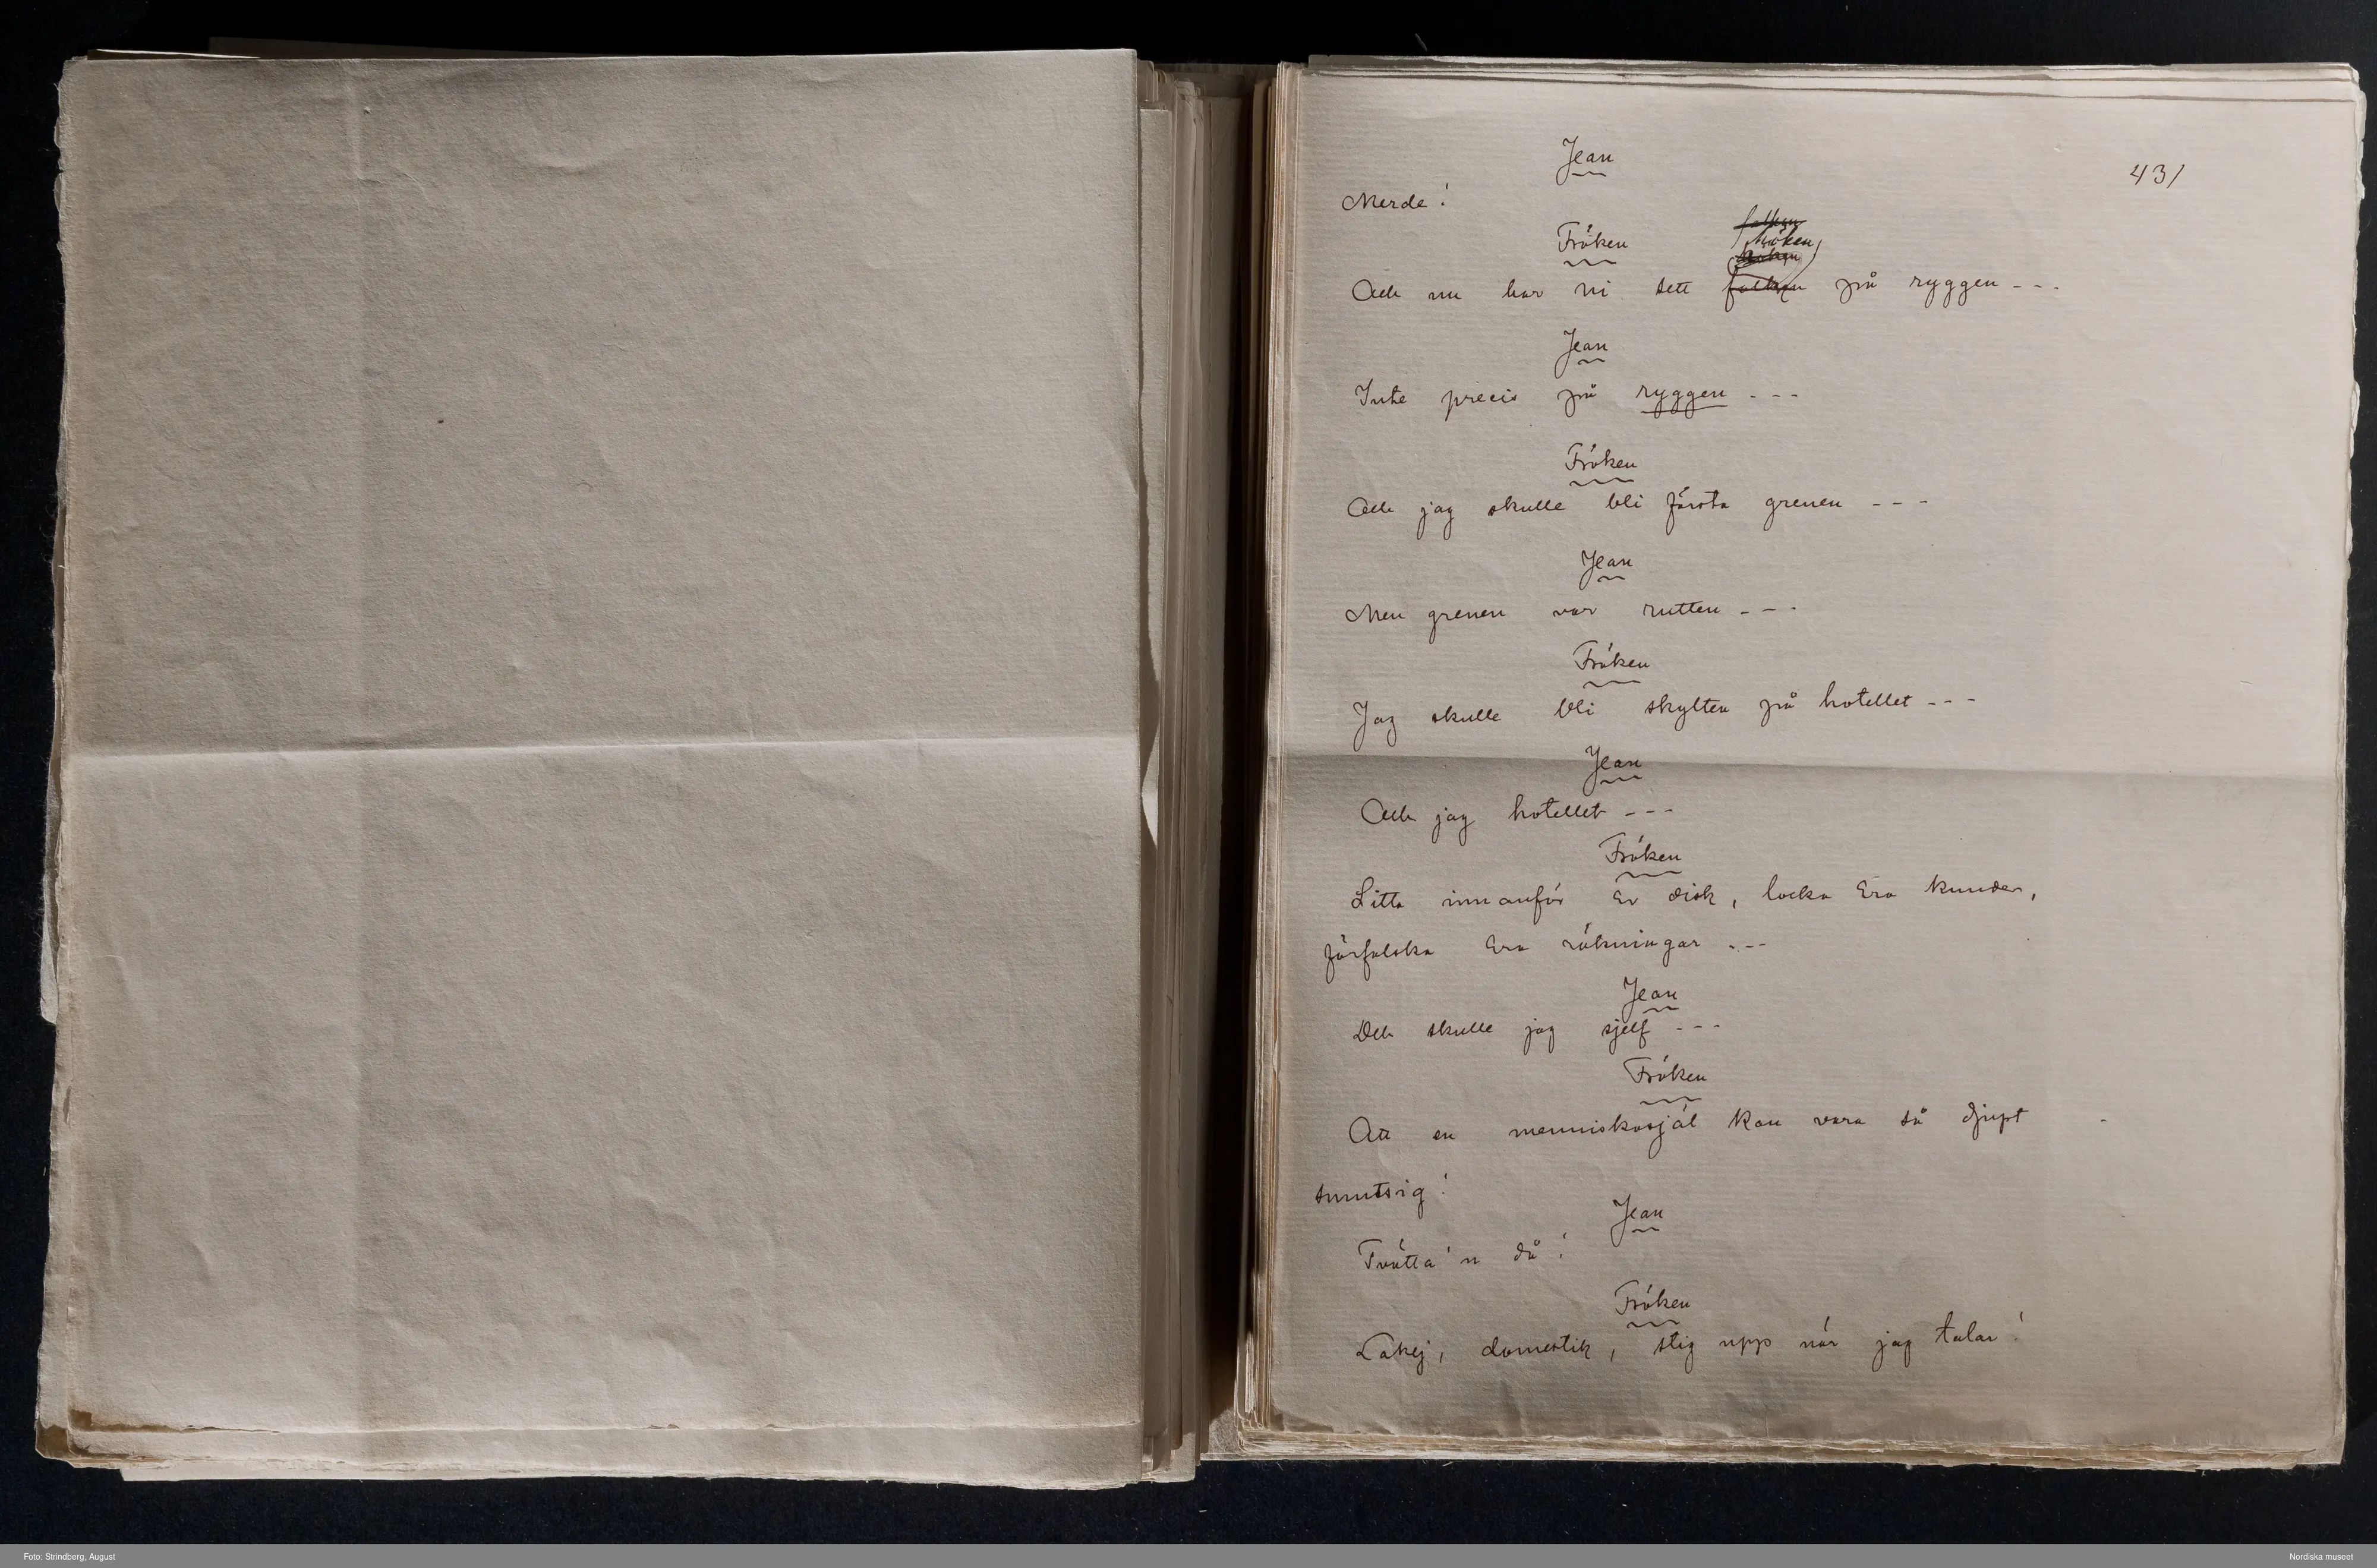 Jean
431
Merde!
Fröken
falken
höken
höken
Och nu har ni sett falken på ryggen - - -
Jean
Inte precis på ryggen - - -
Fröken
Och jag skulle bli första grenen - - -
Jean
Men grenen var rutten - - -
Fröken
Jag skulle bli skylten på hotellet - - -
Jean
Och jag hotellet - - -
Fröken
Sitta innanför Er disk, locka Era kunder,
förfalska Era räkningar - - -
Jean
Det skulle jag sjelf - - -
Fröken
Att en menniskosjäl kan vara så djupt
smutsig!
Jean
Tvätta'n då!
Fröken
Lakej, domestik, stig upp när jag talar!
Foto: Strindberg, August
Nordiska museet